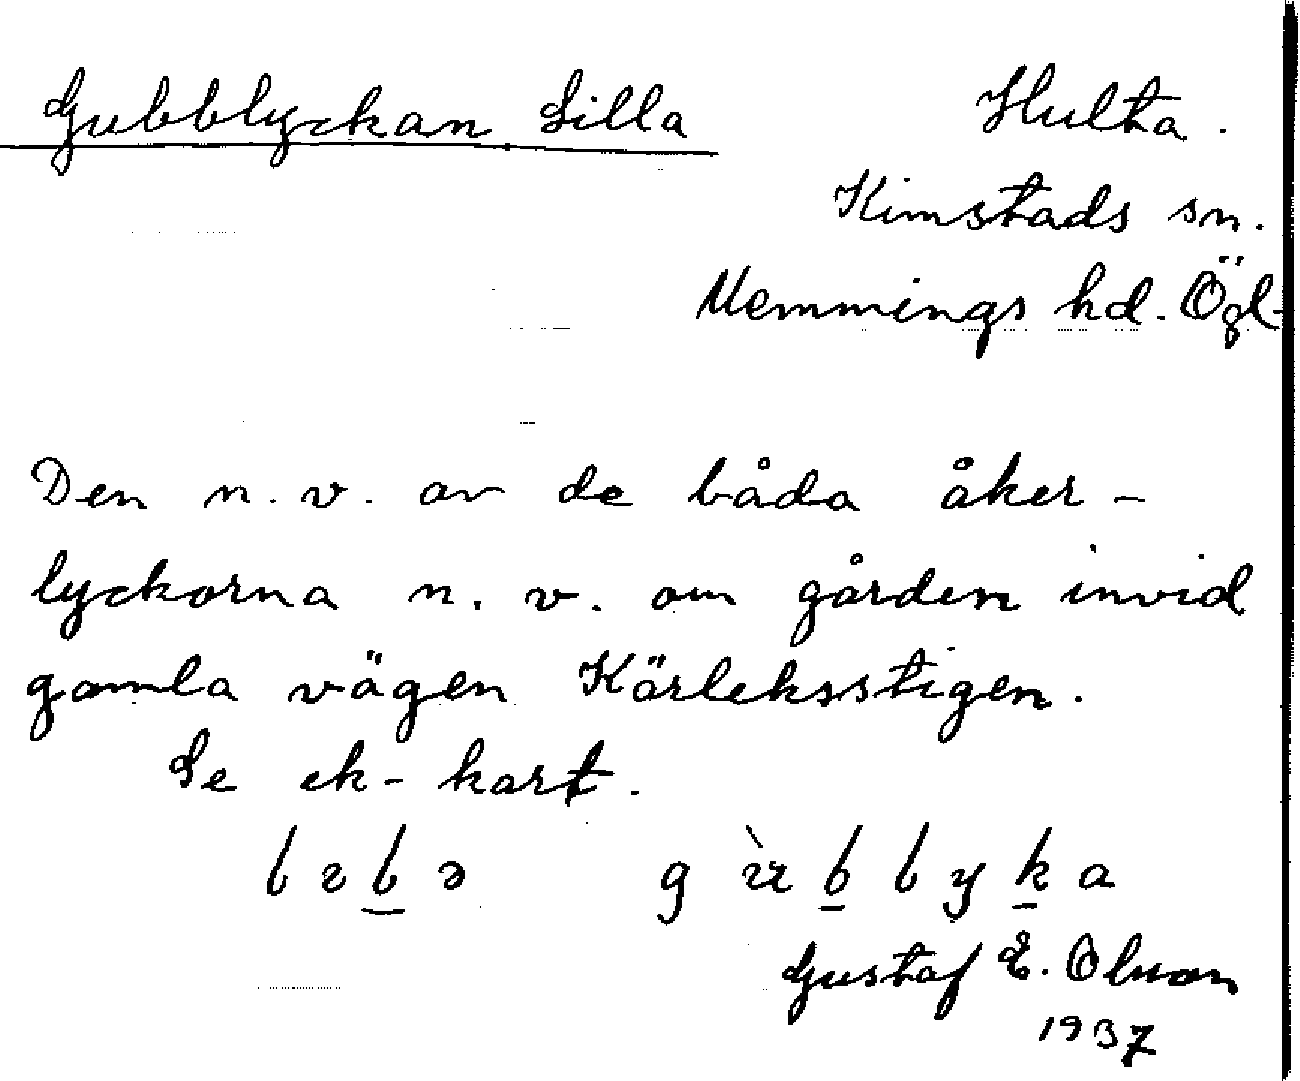 Gubblyckan Lilla Hulta.
Kimstads sn.
Memmings hd. Ögl.
Den n.v. av de båda åker-
lyckorna n.v. om gården invid
gamla vägen Kärleksstigen.
Se ek-kart.
Gustaf E. Olson
1937